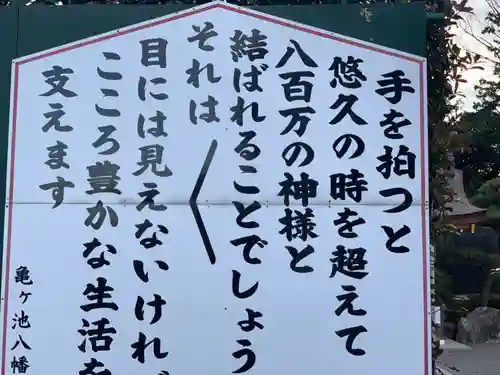 手を拍つと
悠久の時を超えて
八百万の神様と
結ばれることでしょう
それは
目には見えないけれど
こころ豊かな生活を
支えます
亀ヶ池八幡